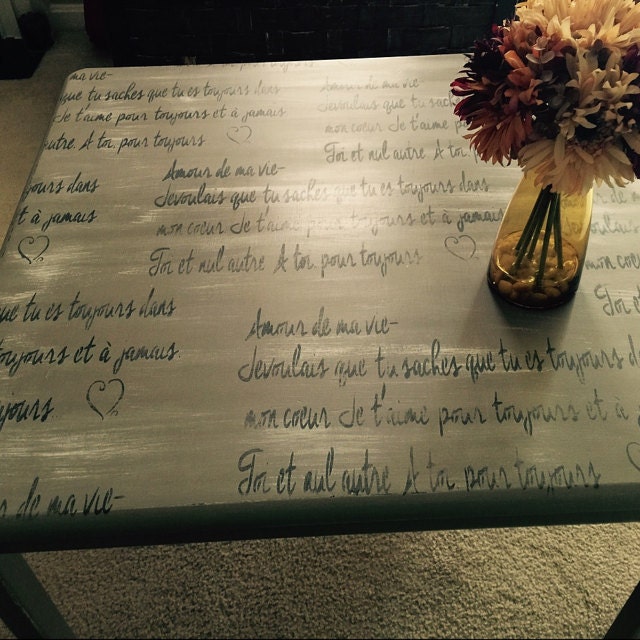 ma vie-
que tu saches que tu es toujours dans
Je t'aime pour toujours et à jamais
autre A toi pour toujours
Amour de ma vie-
Jevoulais que tu saches
mon coeur Je t'aime
Toi et nul autre A toi
dans
et à jamais
Amour de ma vie-
Jevoulais que tu saches que tu es toujours dans
mon coeur Je t'aime pour toujours et à jamais
Toi et nul autre A toi pour toujours
mon coeur
Toi et
tu es toujours dans
toujours et à jamais
Amour de ma vie-
Jevoulais que tu saches que tu es toujours
mon coeur Je t'aime pour toujours et à
Toi et nul autre A toi pour toujours
de ma vie-